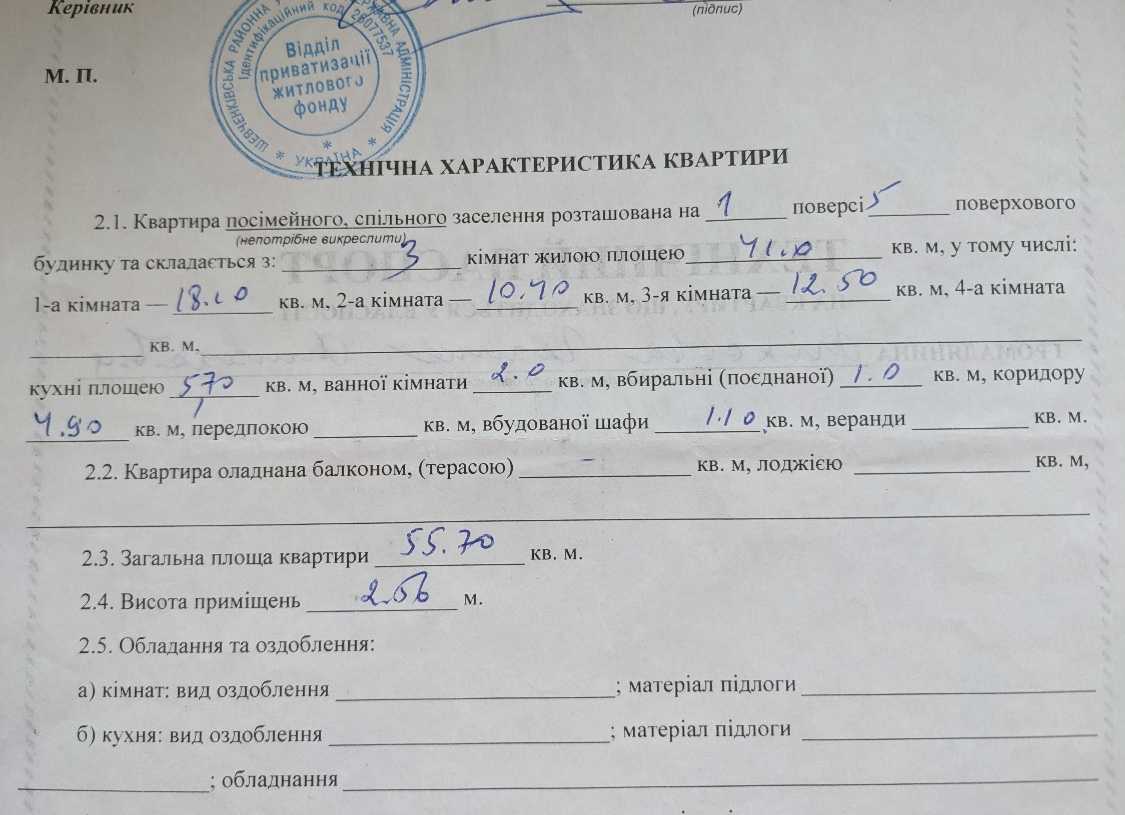 Керівник
(підпис)
ШЕВЧЕНКІВСЬКА РАЙОННА АДМІНІСТРАЦІЯ
Ідентифікаційний код 26077537
* УКРАЇНА *
Відділ
приватизації
житлового
фонду
М. П.
ТЕХНІЧНА ХАРАКТЕРИСТИКА КВАРТИРИ
2.1. Квартира посімейного, спільного заселення розташована на 1 поверсі 5 поверхового
(непотрібне викреслити)
будинку та складається з: 3 кімнат жилою площею 41.0 кв. м, у тому числі:
1-а кімната — 18.10 кв. м, 2-а кімната — 10.40 кв. м, 3-я кімната — 12.50 кв. м, 4-а кімната
кв. м.
кухні площею 5,70 кв. м, ванної кімнати 2.0 кв. м, вбиральні (поєднаної) 1.0 кв. м, коридору
4.90 кв. м, передпокою кв. м, вбудованої шафи 1.10 кв. м, веранди кв. м.
2.2. Квартира оладнана балконом, (терасою) – кв. м, лоджією кв. м,
2.3. Загальна площа квартири 55.70 кв. м.
2.4. Висота приміщень 2.56 м.
2.5. Обладання та оздоблення:
а) кімнат: вид оздоблення ; матеріал підлоги
б) кухня: вид оздоблення ; матеріал підлоги
; обладнання